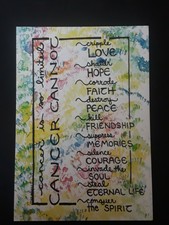 cancer is so limited
CANCER CANNOT
cripple
LOVE
shatter
HOPE
corrode
FAITH
destroy
PEACE
kill
FRIENDSHIP
suppress
MEMORIES
silence
COURAGE
invade the
SOUL
steal
ETERNAL LIFE
conquer
the SPIRIT